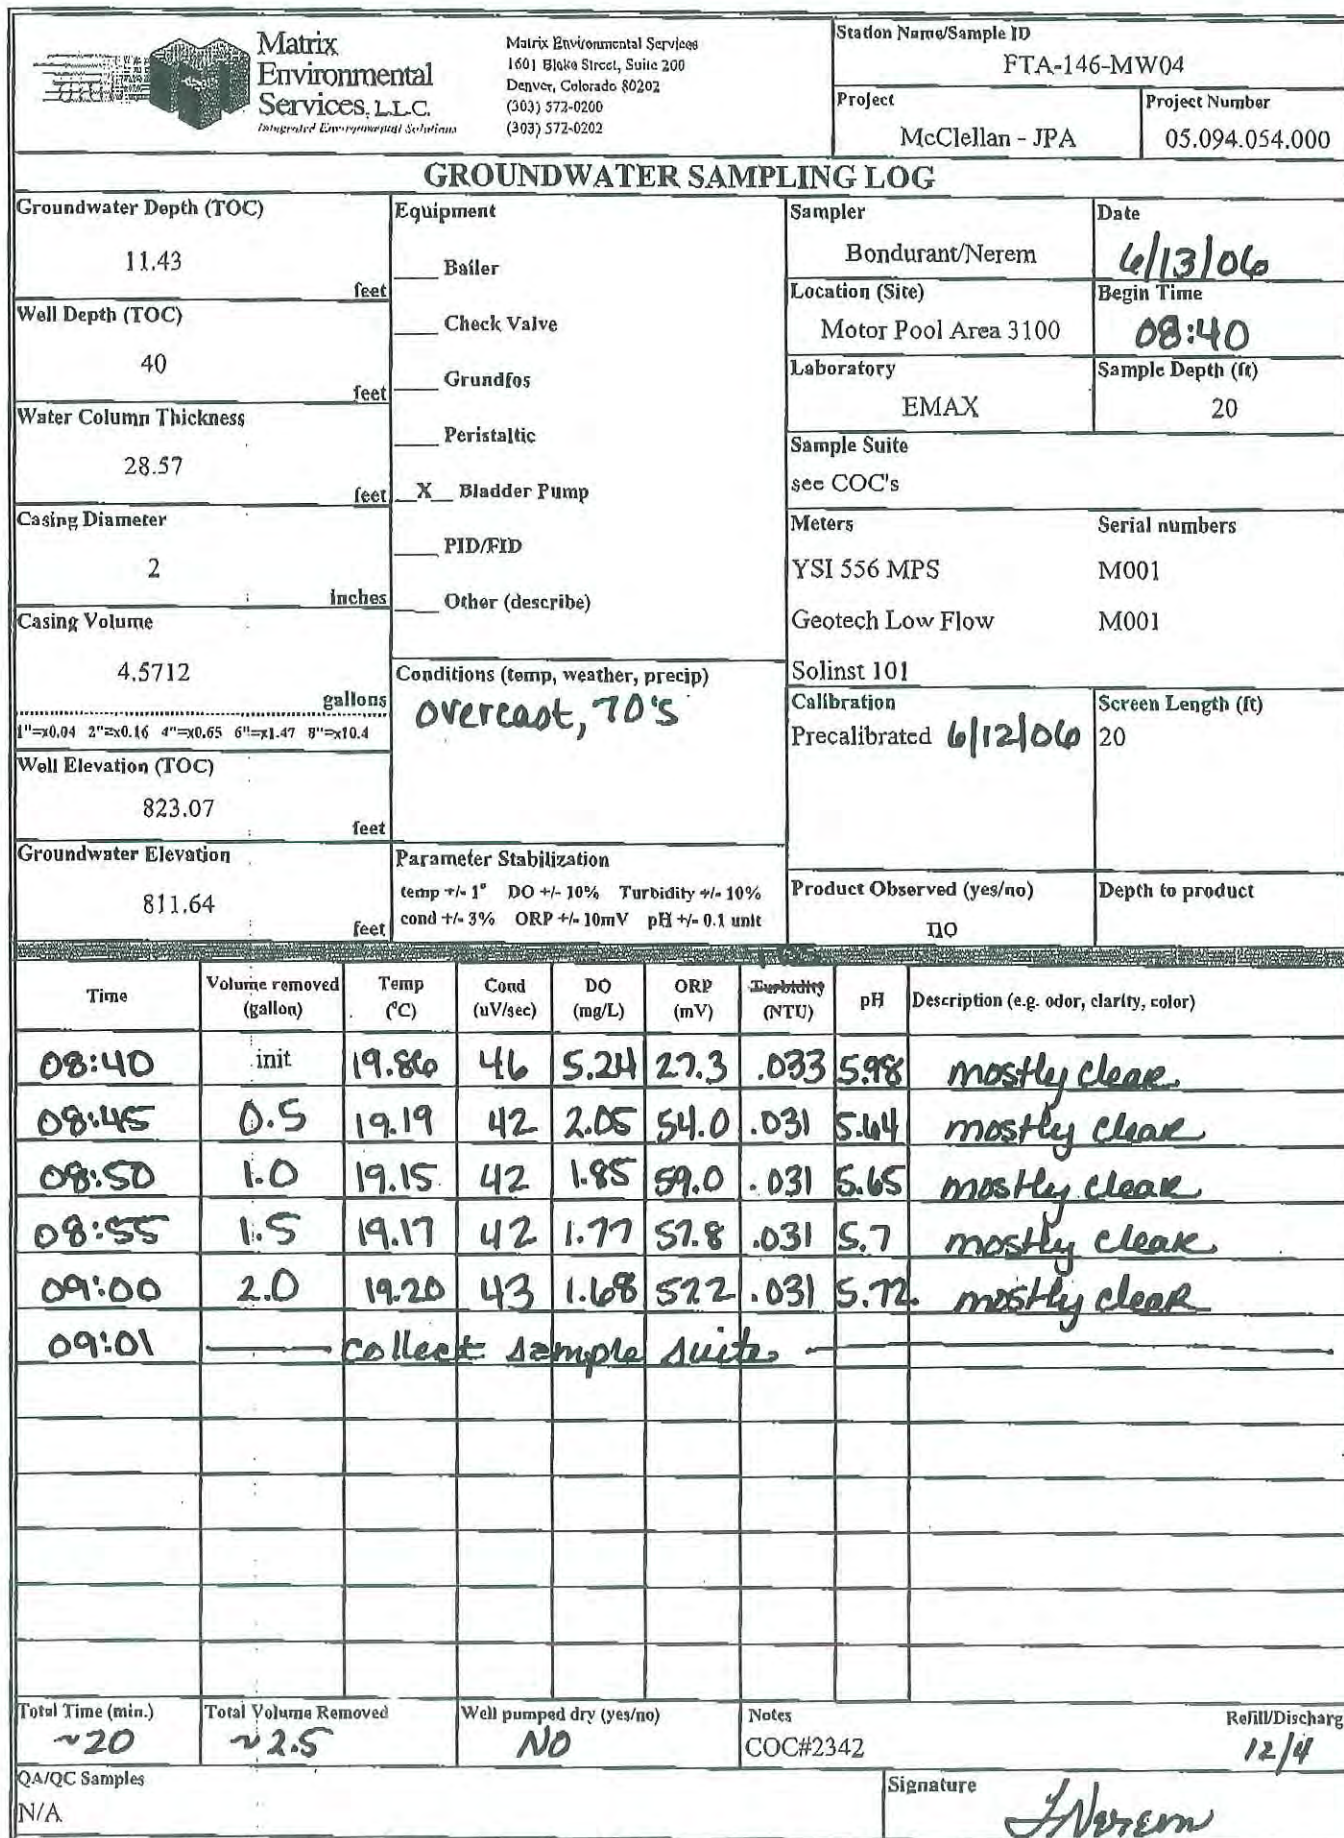 Matrix
Environmental
Services, L.L.C.
Integrated Environmental Solutions
Matrix Environmental Services
1601 Blake Street, Suite 200
Denver, Colorado 80202
(303) 572-0200
(303) 572-0202
Station Name/Sample ID
FTA-146-MW04
Project
McClellan - JPA
Project Number
05.094.054.000
GROUNDWATER SAMPLING LOG
Groundwater Depth (TOC)
11.43
feet
Well Depth (TOC)
40
feet
Water Column Thickness
28.57
feet
Casing Diameter
2
inches
Casing Volume
4.5712
gallons
1"=x0.04 2"=x0.16 4"=x0.65 6"=x1.47 8"=x10.4
Well Elevation (TOC)
823.07
feet
Groundwater Elevation
811.64
feet
Equipment
___ Bailer
___ Check Valve
___ Grundfos
___ Peristaltic
__X__ Bladder Pump
___ PID/FID
___ Other (describe)
Conditions (temp, weather, precip)
overcast, 70's
Parameter Stabilization
temp +/- 1° DO +/- 10% Turbidity +/- 10%
cond +/- 3% ORP +/- 10mV pH +/- 0.1 unit
Sampler
Bondurant/Nerem
Date
6/13/06
Location (Site)
Motor Pool Area 3100
Begin Time
08:40
Laboratory
EMAX
Sample Depth (ft)
20
Sample Suite
see COC's
Meters Serial numbers
YSI 556 MPS M001
Geotech Low Flow M001
Solinst 101
Calibration
Precalibrated 6/12/06
Screen Length (ft)
20
Product Observed (yes/no)
no
Depth to product
Time Volume removed (gallon) Temp (°C) Cond (uV/sec) DO (mg/L) ORP (mV) Turbidity (NTU) pH Description (e.g. odor, clarity, color)
08:40 init 19.86 46 5.24 27.3 .033 5.98 mostly clear
08:45 0.5 19.19 42 2.05 54.0 .031 5.64 mostly clear
08:50 1.0 19.15 42 1.85 59.0 .031 5.65 mostly clear
08:55 1.5 19.17 42 1.77 57.8 .031 5.7 mostly clear
09:00 2.0 19.20 43 1.68 57.2 .031 5.72 mostly clear
09:01 collect sample suite
Total Time (min.)
~20
Total Volume Removed
~2.5
Well pumped dry (yes/no)
NO
Notes
COC#2342
Refill/Discharg
12/4
QA/QC Samples
N/A
Signature
J Nerem